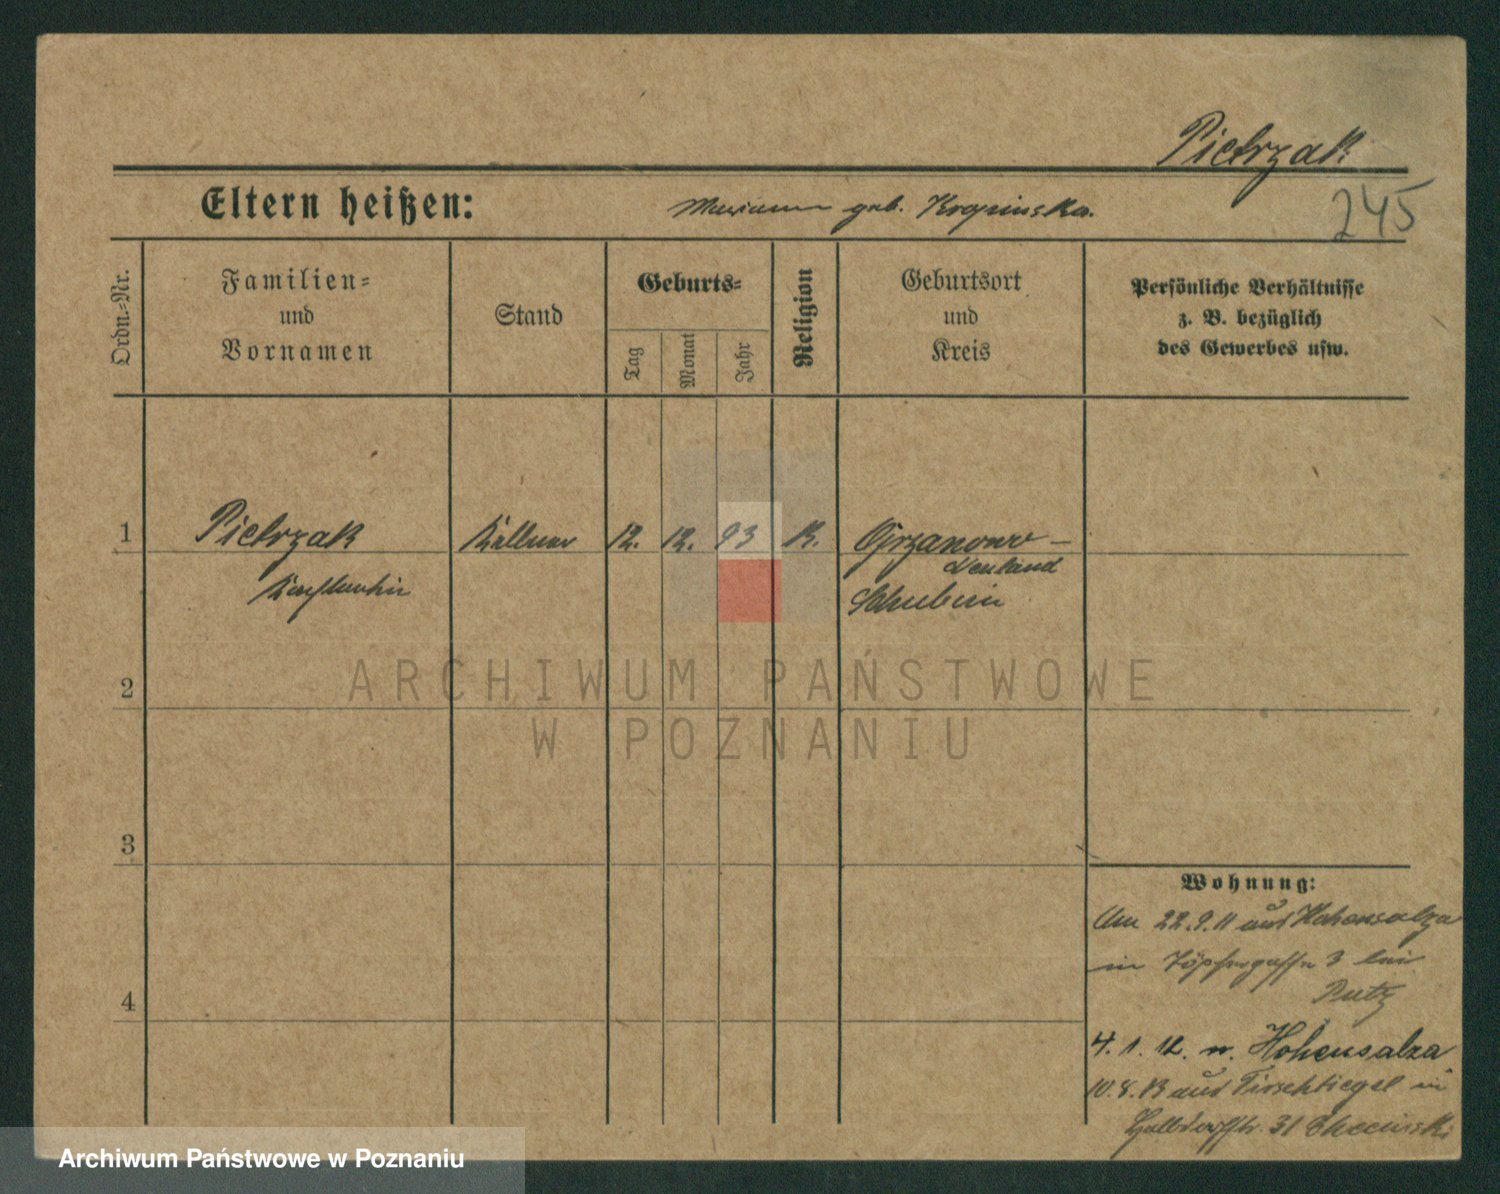 Pietrzak
245
Eltern heißen:
geb. Kropinska.
Ordn.-Nr.
Familien-
und
Vornamen
Stand
Geburts-
Tag
Monat
Jahr
Religion
Geburtsort
und
Kreis
Persönliche Verhältnisse
z. B. bezüglich
des Gewerbes usw.
1
Pietrzak
Kellner
12.
12.
93
K.
Ojrzanowo-
Neuland
Schubin
2
3
4
Wohnung:
Am 22.9.11 aus Hohensalza
in Töpfergasse 3 bei
Putz
4. 1. 12. n. Hohensalza
10.8.13 aus Tirschtiegel in
Halbdorfstr. 31
ARCHIWUM PAŃSTWOWE
W POZNANIU
Archiwum Państwowe w Poznaniu